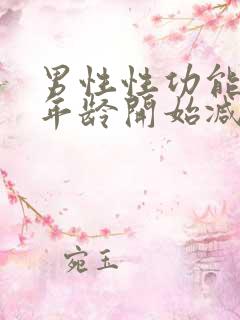 男性性功能
年龄開始减
宛玉